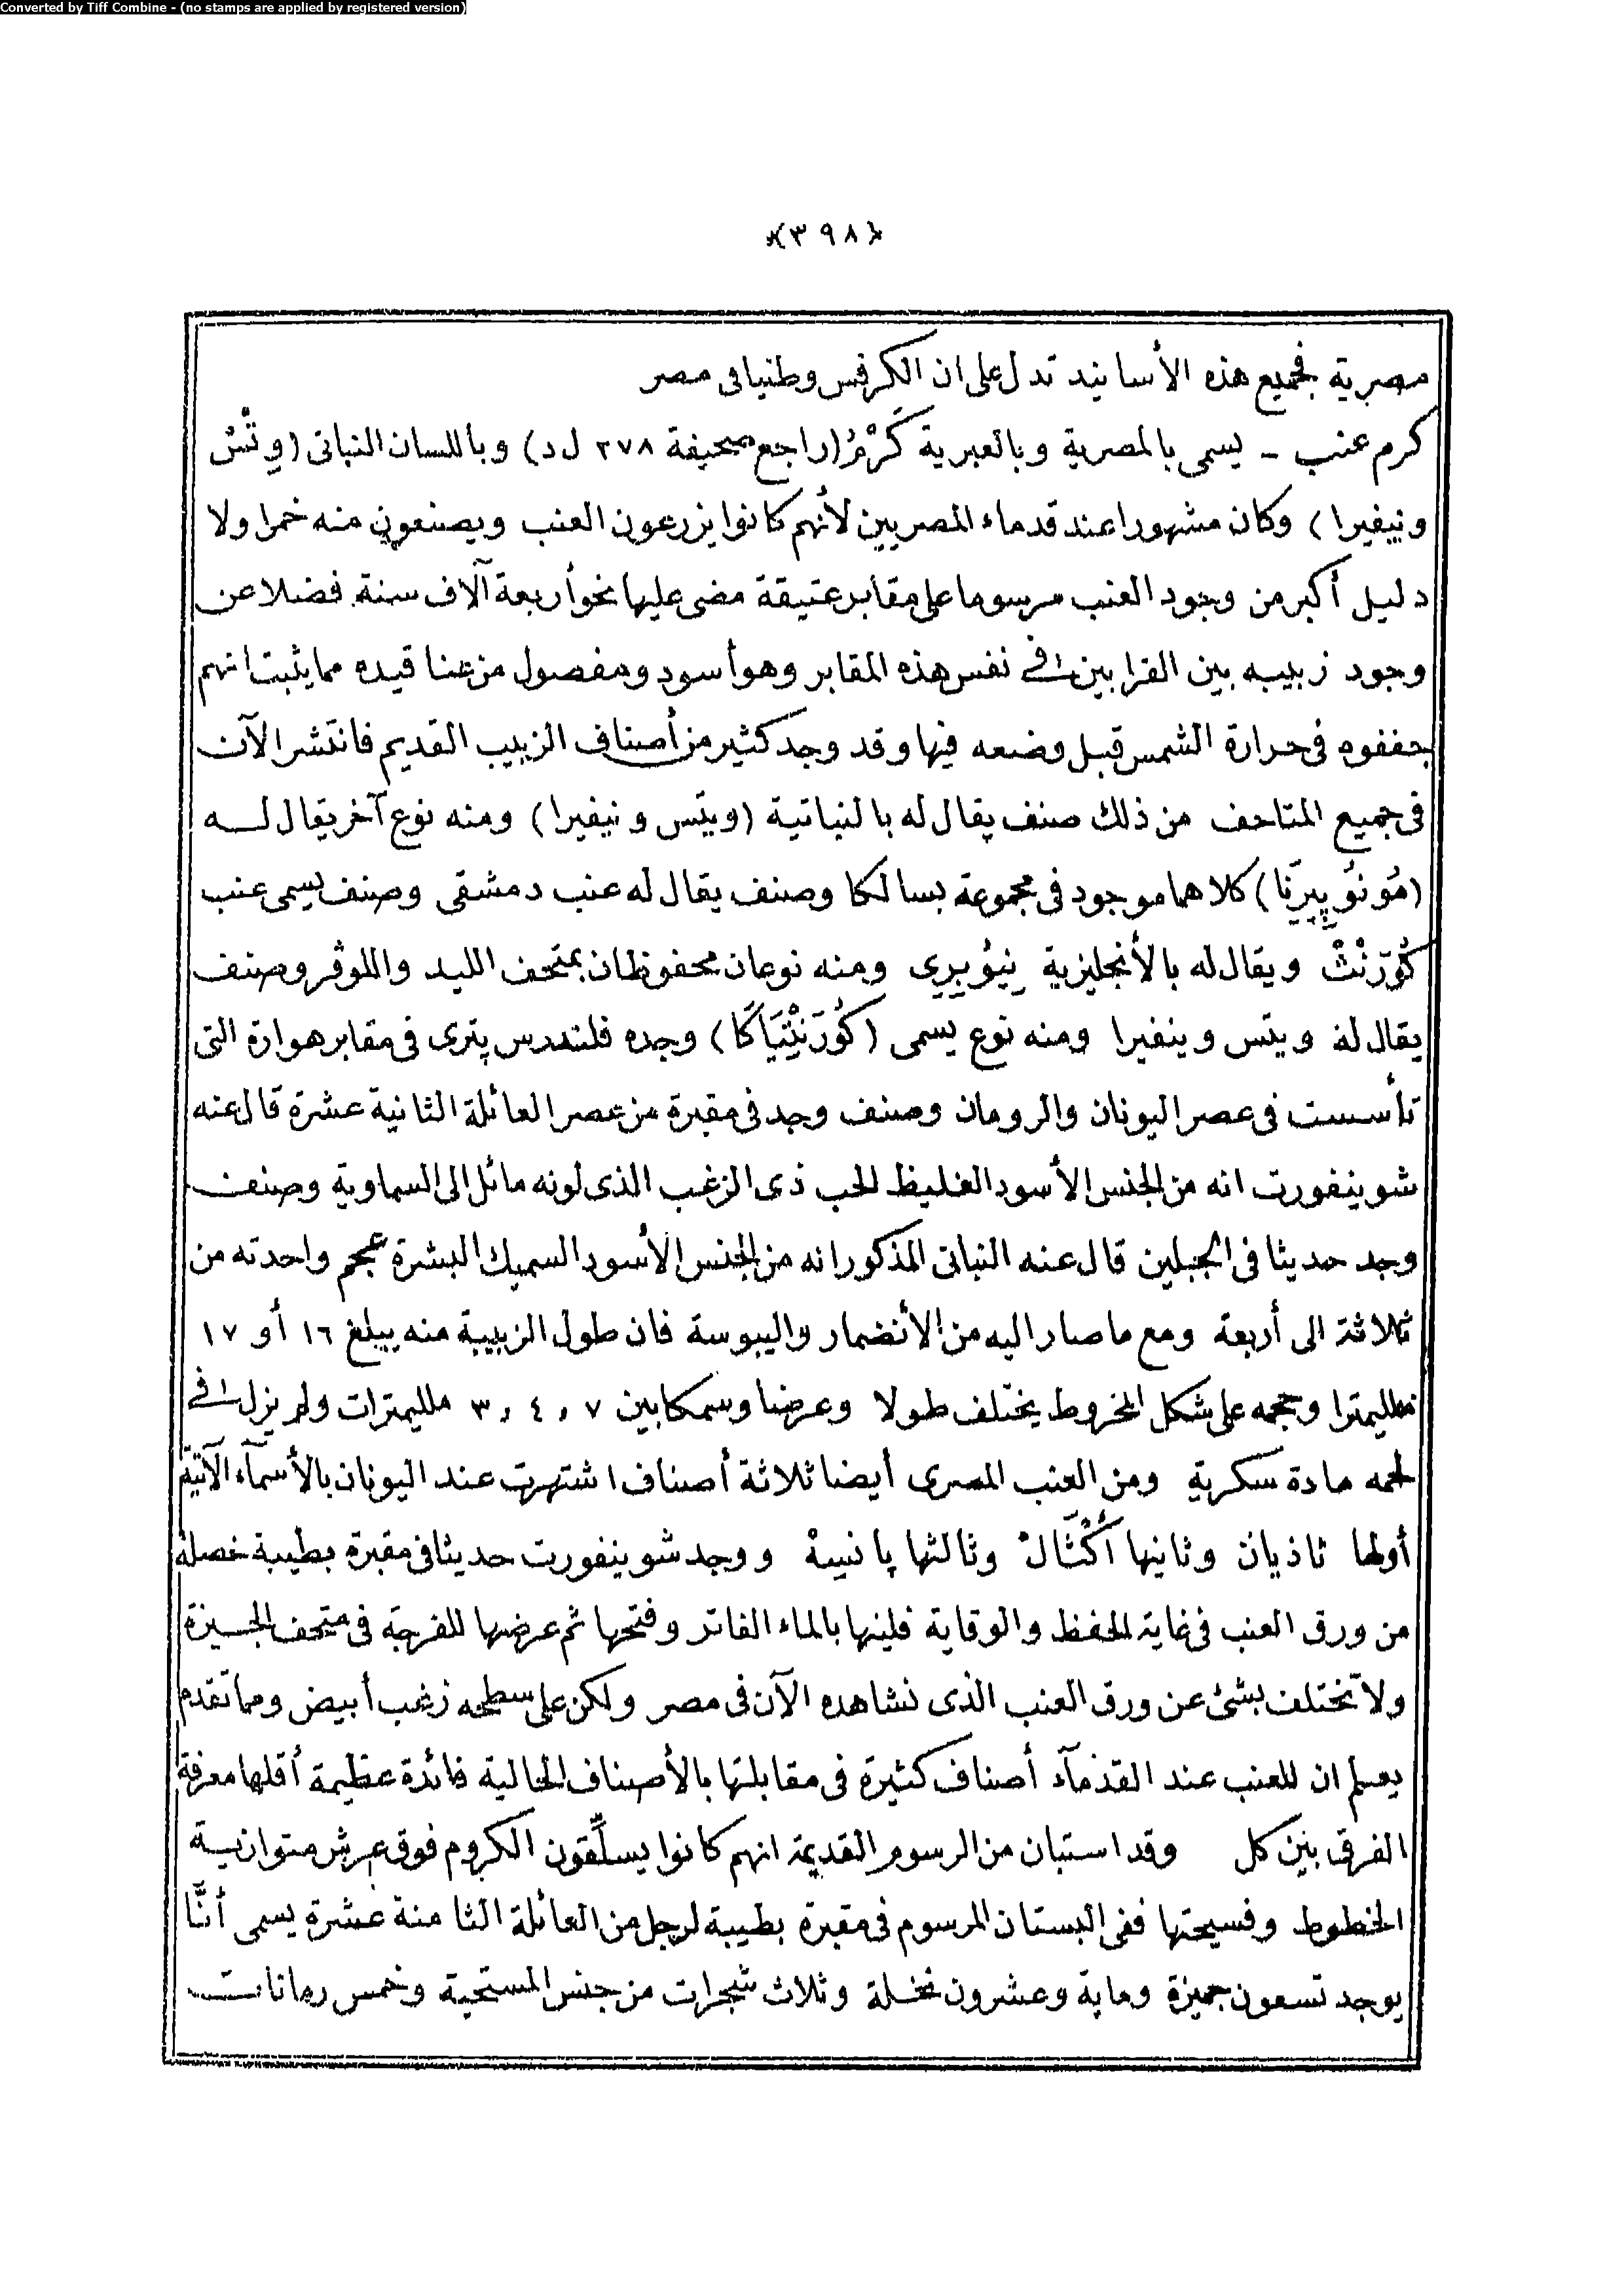 Converted by Tiff Combine - (no stamps are applied by registered version)
﴿٣٩٨﴾
مصرية فجميع هذه الأسانيد تدل على ان الكرفس وطنيا فى مصر
كرم عنب – يسمى بالمصرية وبالعبرية كَرْمُ (راجع صحيفة ٢٧٨ ل د) وباللسان النباتى (وِتْسْ
ونيفيرا) وكان مشهورا عند قدماء المصريين لأنهم كانوا يزرعون العنب ويصنعون منه خمرا ولا
دليل أكبر من وجود العنب مرسوما على مقابر عتيقة مضى عليها نحو أربعة آلاف سنة فضلا عن
وجود زبيبه بين القرابين فى نفس هذه المقابر وهو أسود ومفصول من عناقيده مما يثبت انهم
جففوه فى حرارة الشمس قبل وضعه فيها وقد وجد كثير من أصناف الزبيب القديم فانتشر الآن
فى جميع المتاحف من ذلك صنف يقال له بالنباتية (ويتس ونيفيرا) ومنه نوع آخر يقال له
(مُونُوپِيرِنَا) كلاهما موجود فى مجموعة بسالكا وصنف يقال له عنب دمشقى وصنف يسمى عنب
كُورَنْثْ ويقال له بالأنجليزية نِيُوبِرِى ومنه نوعان محفوظان بمتحف الليد واللوڤر وصنف
يقال له ويتس وينفيرا ومنه نوع يسمى (كُورَنْتِيَاكَا) وجده فلندرس پترى فى مقابر هوارة التى
تأسست فى عصر اليونان والرومان وصنف وجد فى مقبرة من عصر العائلة الثانية عشرة قال عنه
شوينفورت انه من الجنس الأسود الغليظ الحب ذى الزغب الذى لونه مائل الى السماوية وصنف
وجد حديثا فى الجبلين قال عنه النباتى المذكور انه من الجنس الأسود السميك البشرة عجم واحدته من
ثلاثة الى أربعة ومع ما صار اليه من الأنضمار واليبوسة فان طول الزبيبة منه يبلغ ١٦ أو ١٧
ملليمترا وحجمه على شكل المخروط يختلف طولا وعرضا وسمكا بين ٧ , ٤ , ٣ ملليمترات ولم يزل فى
لحمه مادة سكرية ومن العنب المصرى أيضا ثلاثة أصناف اشتهرت عند اليونان بالأسمآء الآتية
أولها ثاذيان وثانيها أَكْثَال وثالثها پانسية ووجد شوينفورت حديثا فى مقبرة بطيبة خصلة
من ورق العنب فى غاية الحفظ والوقاية فلينها بالماء الفاتر وفتحها ثم عرضها للفرجة فى متحف الجيزة
ولا تختلف بشئ عن ورق العنب الذى نشاهده الآن فى مصر ولكن على سطحه زغب أبيض ومما تقدم
يعلم ان للعنب عند القدمآء أصناف كثيرة فى مقابلتها بالأصناف الحالية فائدة عظيمة أقلها معرفة
الفرق بين كل وقد استبان من الرسوم القديمة انهم كانوا يسلِّقون الكروم فوق عرش متوازية
الخطوط وفسيحتها ففى البستان المرسوم فى مقبرة بطيبة لرجل من العائلة الثامنة عشرة يسمى أنَّا
يوجد تسعون جميزة وماية وعشرون نخلة وثلاث شجرات من جنس المستحية وخمس رمانات